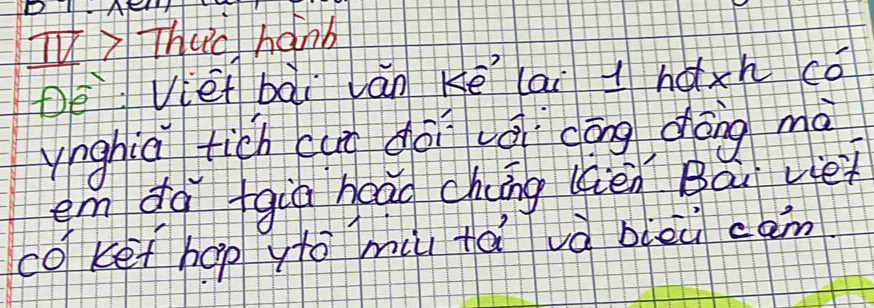 IV > Thực hành
Đề: Viết bài văn kể lại 1 hđxh có
ynghĩa tích cực đối với cộng đồng mà
em đã tgia hoặc chứng kiến. Bài viết
có kết hợp ytố miu tả và biểu cảm